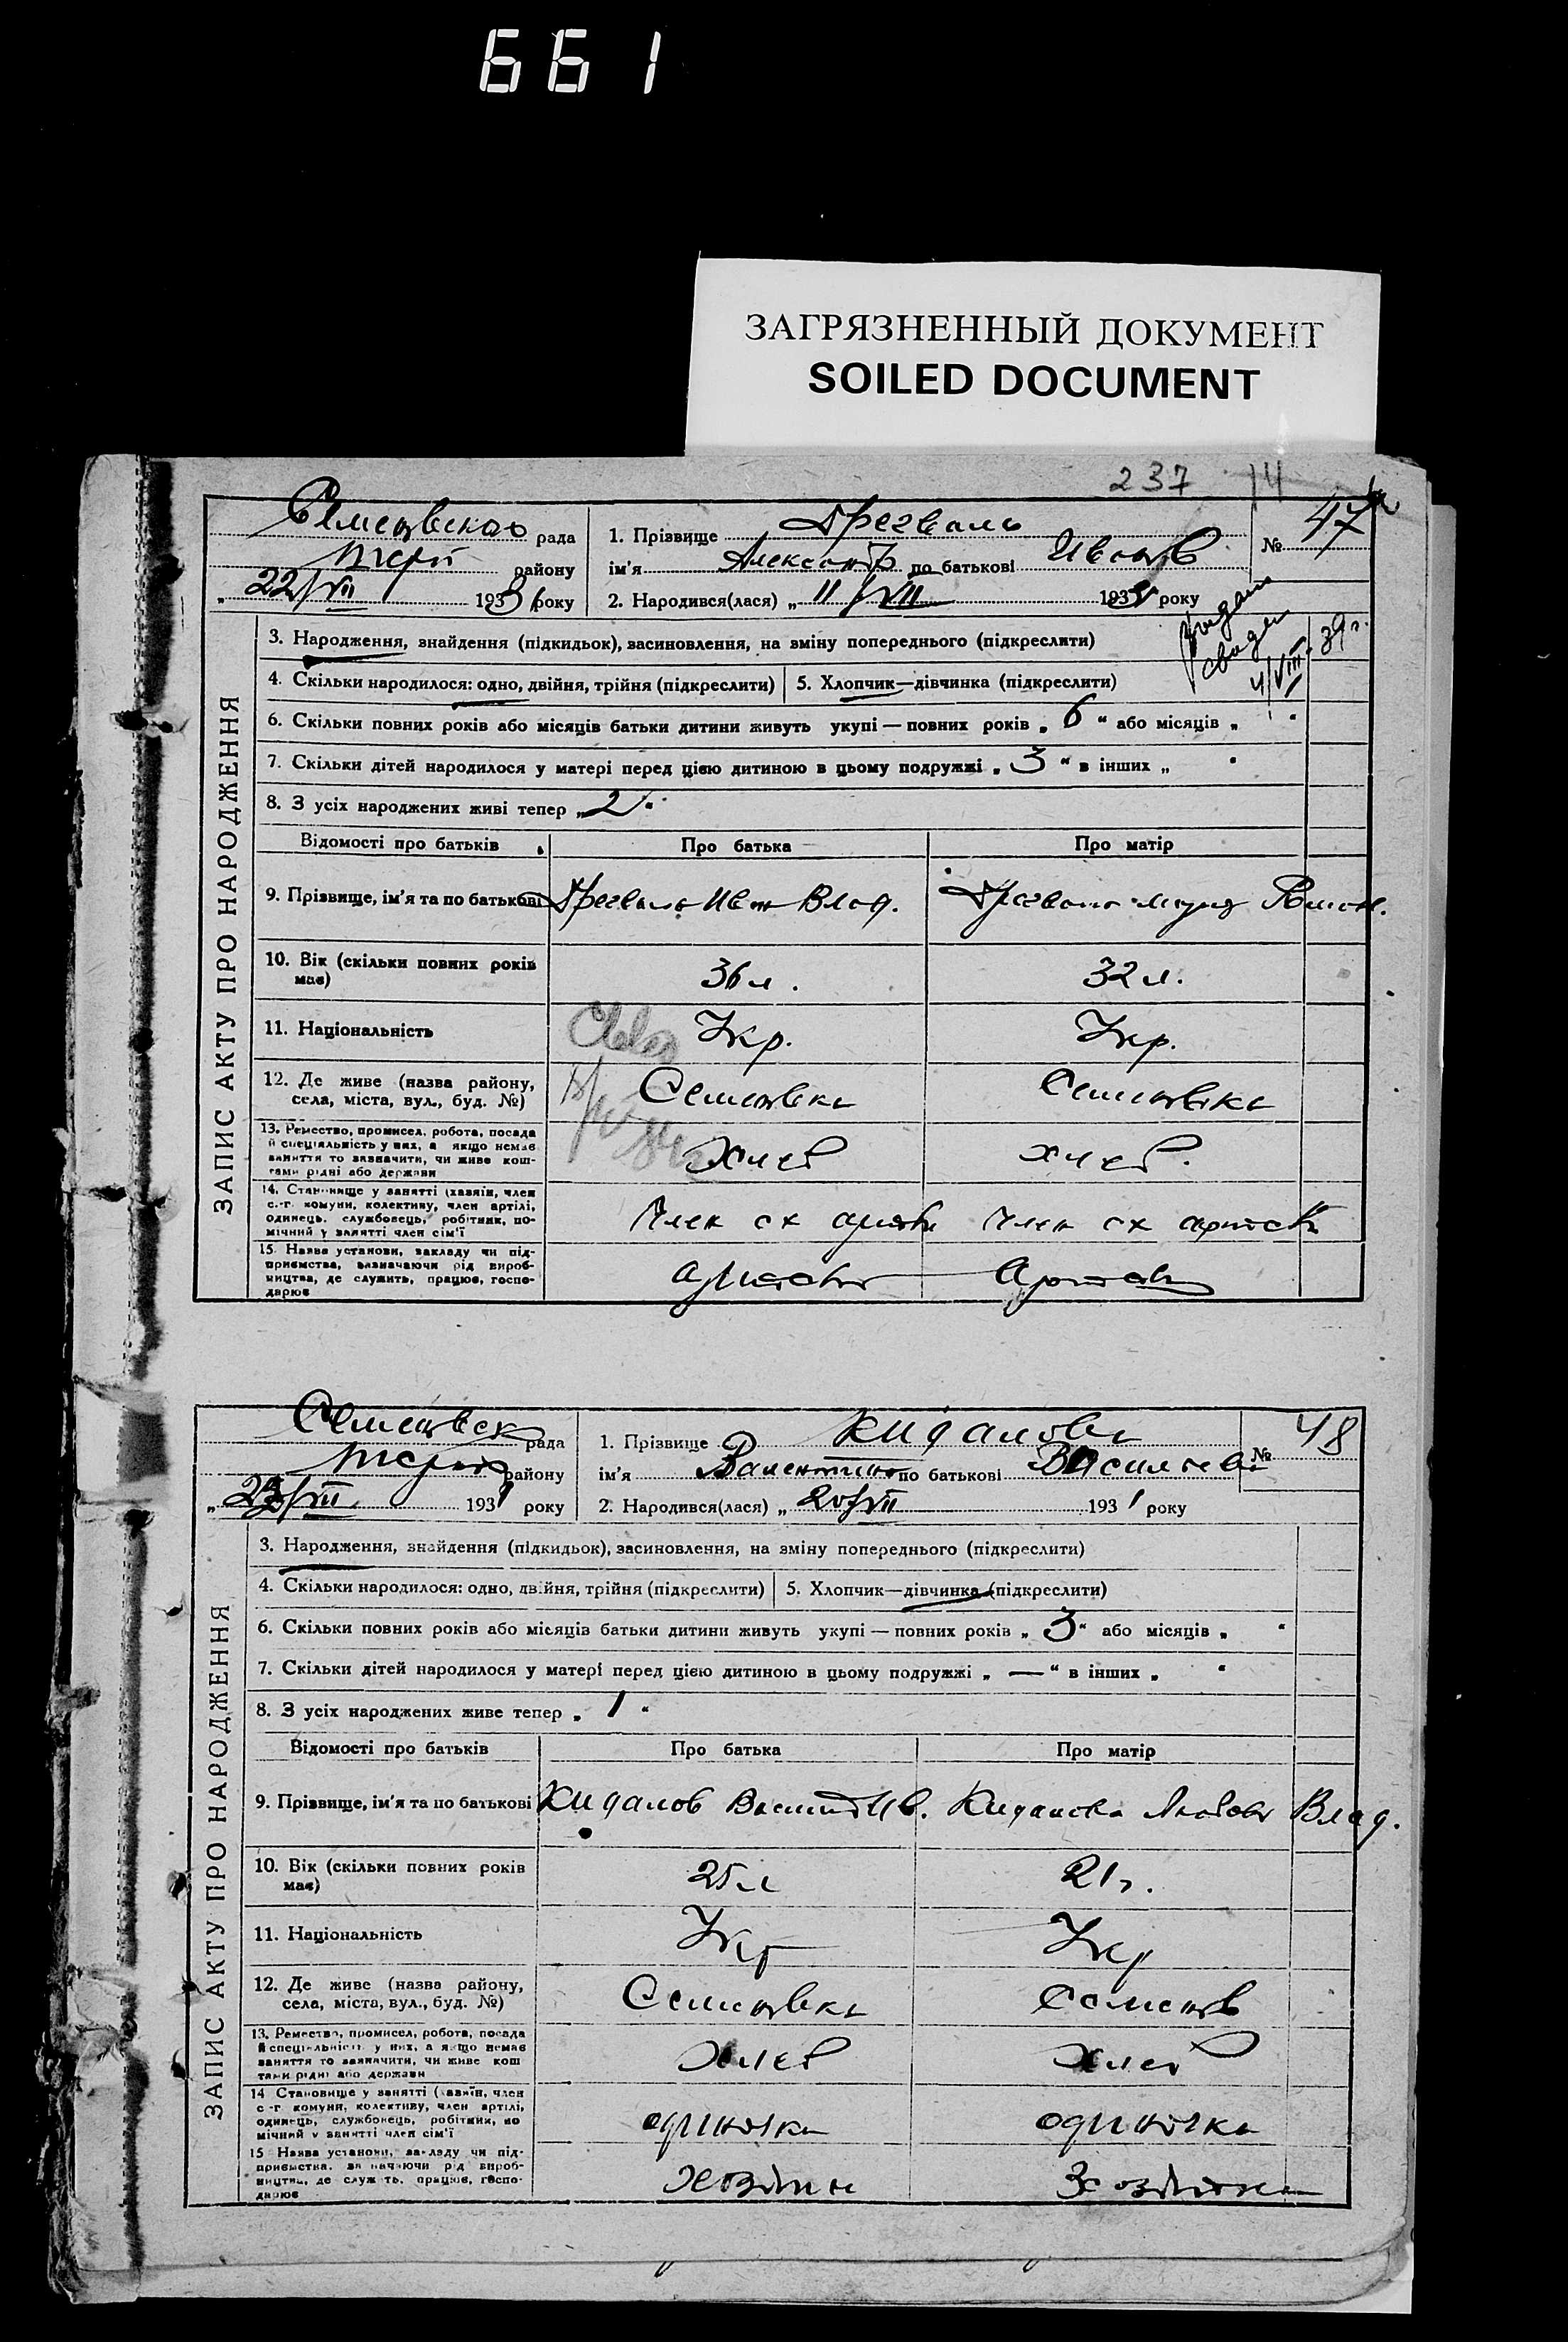 661
ЗАГРЯЗНЕННЫЙ ДОКУМЕНТ
SOILED DOCUMENT
237 14
рада
1. Прізвище Дрегваль
№ 47
району
ім'я по батькові Иванов
„ 22/VII 1931 року
2. Народився(лася) „ 11/VII 1931 року
3. Народження, знайдення (підкидьок), засиновлення, на зміну попереднього (підкреслити)
4/VIII 39 г.
4. Скільки народилося: одно, двійня, трійня (підкреслити)
5. Хлопчик—дівчинка (підкреслити)
6. Скільки повних років або місяців батьки дитини живуть укупі — повних років „ 6 “ або місяців „ “
7. Скільки дітей народилося у матері перед цією дитиною в цьому подружжі „ 3 “ в інших „ “
8. З усіх народжених живі тепер „ 2 “
ЗАПИС АКТУ ПРО НАРОДЖЕННЯ
Відомості про батьків
Про батька
Про матір
9. Прізвище, ім'я та по батькові
Дрегваль Иван Влад.
Дрегваль Мария
10. Вік (скільки повних років має)
36 л.
32 л.
11. Національність
Укр.
Укр.
12. Де живе (назва району,
села, міста, вул., буд. №)
Семеновка
Семеновка
13. Ремество, промисел, робота, посада
й спеціяльність у них, а якщо немає
заняття то зазначити, чи живе кош-
тами рідні або держави
Хлеб
хлеб.
14. Становище у занятті (хазяїн, член
с.-г. комуни, колективу, член артілі,
одинець, службовець, робітник, по-
мічний у занятті член сім'ї
Член сх артели
Член сх артели
15. Назва установи, закладу чи під-
приємства, зазначаючи рід вироб-
ництва, де служить, працює, госпо-
дарює
рада
1. Прізвище Кидалова
№ 48
району
ім'я Валентина по батькові Васильева
1931 року
2. Народився(лася) „ 20/VII 1931 року
3. Народження, знайдення (підкидьок), засиновлення, на зміну попереднього (підкреслити)
4. Скільки народилося: одно, двійня, трійня (підкреслити)
5. Хлопчик—дівчинка (підкреслити)
6. Скільки повних років або місяців батьки дитини живуть укупі — повних років „ 3 “ або місяців „ “
7. Скільки дітей народилося у матері перед цією дитиною в цьому подружжі „ — “ в інших „ “
8. З усіх народжених живе тепер „ 1 “
ЗАПИС АКТУ ПРО НАРОДЖЕННЯ
Відомості про батьків
Про батька
Про матір
9. Прізвище, ім'я та по батькові
Кидалов Василий Ив.
Кидалова Любовь Влад.
10. Вік (скільки повних років має)
25 л
21 г.
11. Національність
Укр
Укр
12. Де живе (назва району,
села, міста, вул., буд. №)
Семеновка
Семенов
13. Ремество, промисел, робота, посада
й спеціяльність у них, а якщо немає
заняття то зазначити, чи живе кош
тами рідні або держави
Хлеб
Хлеб
14 Становище у занятті (хазяїн, член
с-г комуни, колективу, член артілі,
одинець, службовець, робітник, по
мічний у занятті член сім'ї
одиночка
одиночка
15 Назва установи, закладу чи під-
приємства, зазначаючи рід вироб-
ництва, де служить, працює, госпо-
дарює